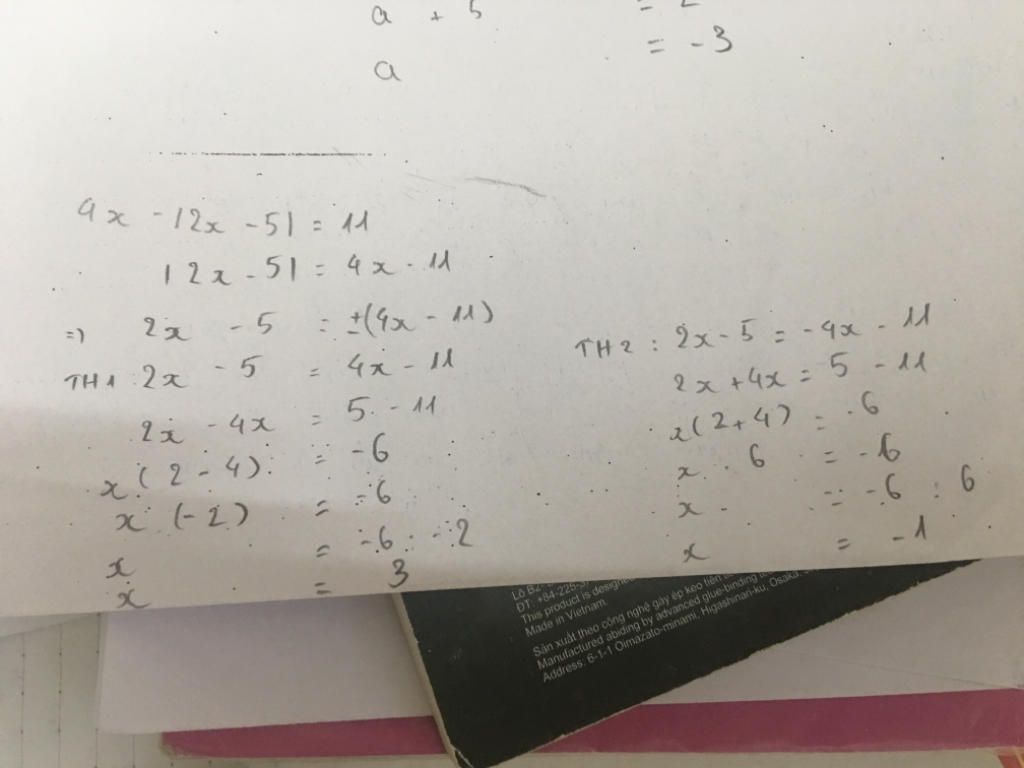 a + 5 = 2
a = -3
4x - |2x - 5| = 11
|2x - 5| = 4x - 11
=) 2x - 5 = ±(4x - 11)
TH1: 2x - 5 = 4x - 11
2x - 4x = 5 - 11
x(2 - 4) = -6
x (-2) = -6
x = -6 : -2
x = 3
TH2: 2x - 5 = -4x - 11
2x + 4x = 5 - 11
x(2 + 4) = -6
x . 6 = -6
x = -6 : 6
x = -1
This product is designed
Made in Vietnam.
Sản xuất theo công nghệ gáy ép keo tiên
Manufactured abiding by advanced glue-binding
Address: 6-1-1 Oimazato-minami, Higashinari-ku, Osaka,